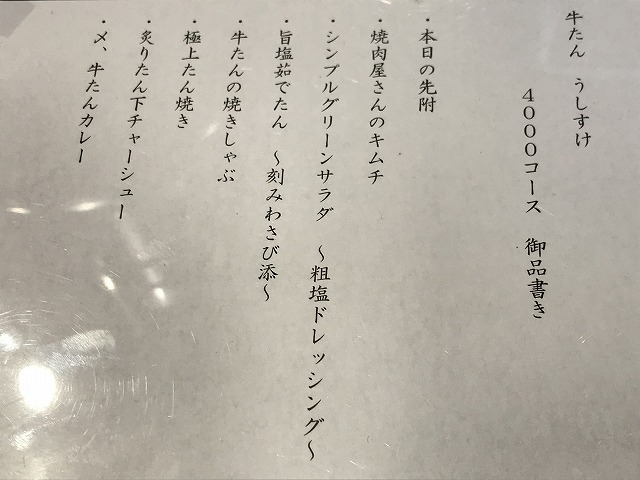 牛たん　うしすけ
4000コース　御品書き
・本日の先附
・焼肉屋さんのキムチ
・シンプルグリーンサラダ　～粗塩ドレッシング～
・旨塩茹でたん　～刻みわさび添～
・牛たんの焼きしゃぶ
・極上たん焼き
・炙りたん下チャーシュー
・〆、牛たんカレー